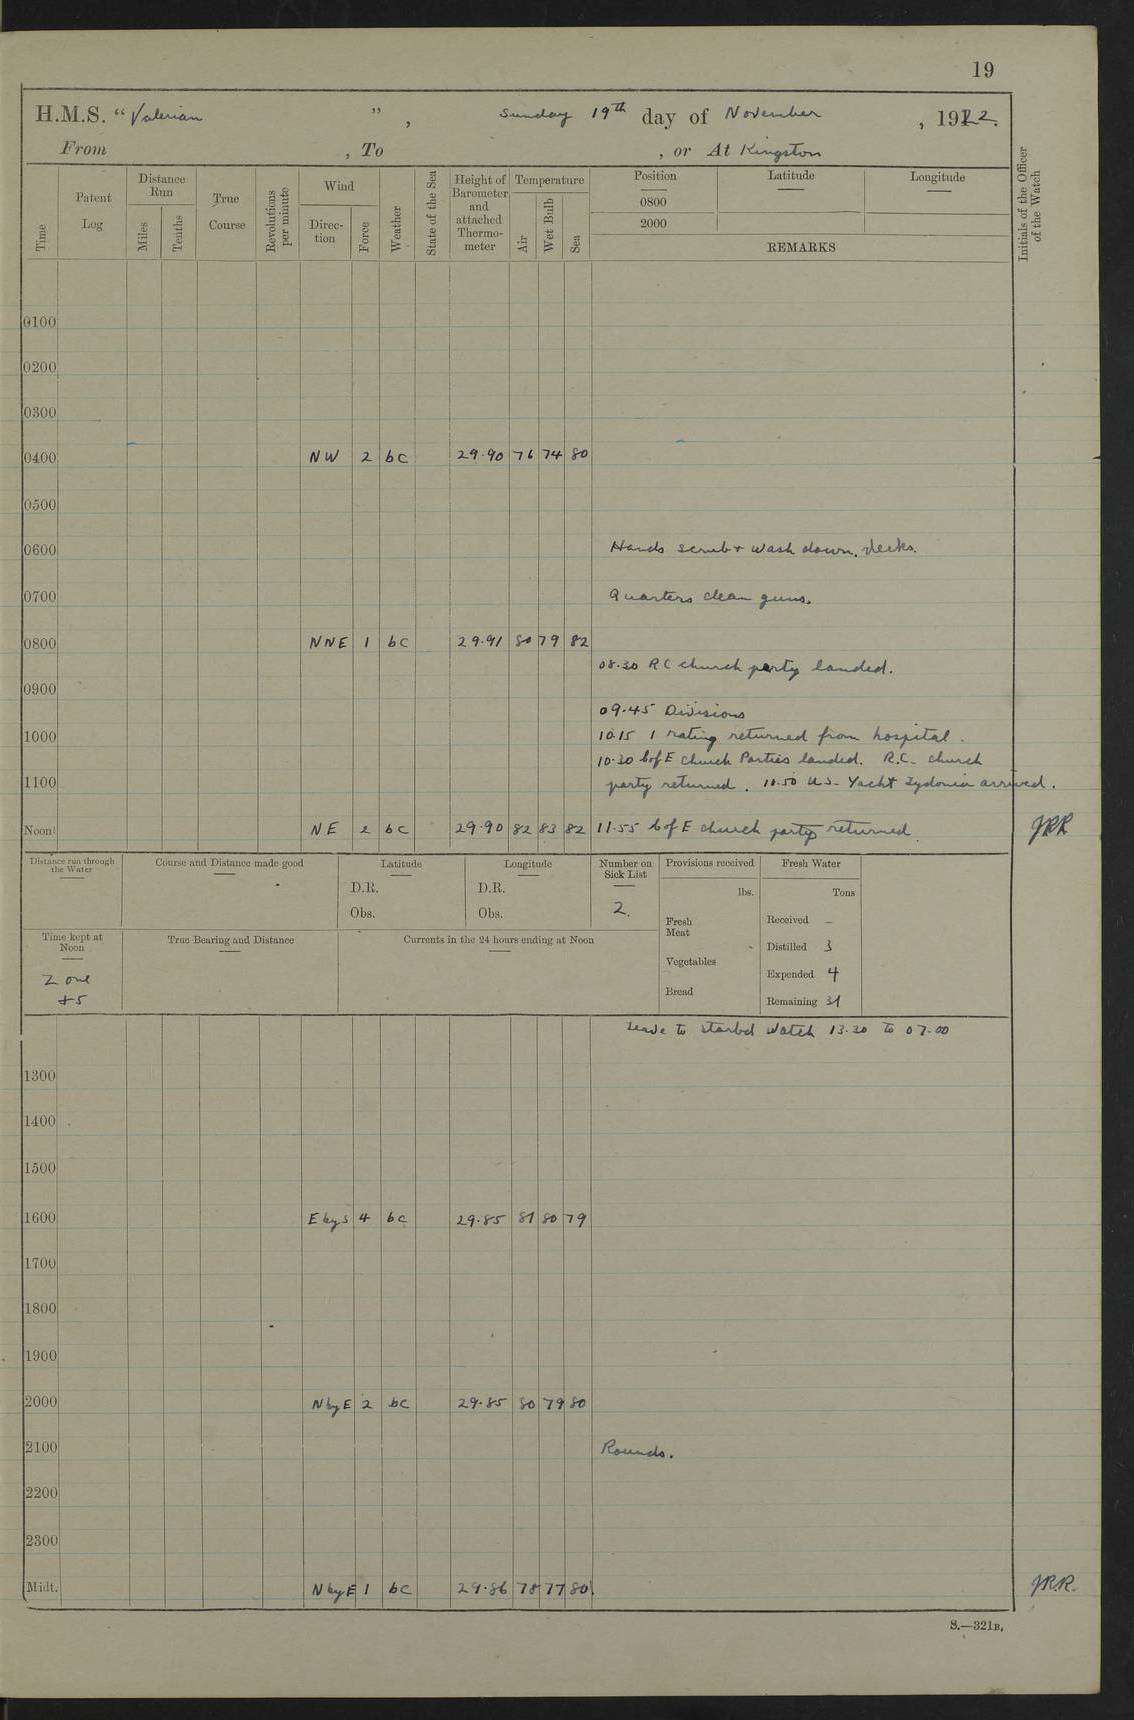 19
H.M.S. "Valerian", Sunday 19th day of November, 1922.
From , To , or At Kingston
Time
Patent Log
Distance Run
Miles
Tenths
True Course
Revolutions per minute
Wind
Direction
Force
Weather
State of the Sea
Height of Barometer and attached Thermometer
Temperature
Air
Wet Bulb
Sea
Position
0800
2000
Latitude
Longitude
REMARKS
Initials of the Officer of the Watch
0100
0200
0300
0400 NW 2 bc 29.90 76 74 80
0500
0600 Hands scrub & wash down decks.
0700 Quarters clean guns.
0800 NNE 1 bc 29.91 80 79 82
08.30 RC church party landed.
0900
09.45 Divisions
1000 10.15 1 rating returned from hospital.
10.30 C of E church Parties landed. R.C. church
1100 party returned. 10.50 U.S. Yacht arrived.
Noon NE 2 bc 29.90 82 83 82 11.55 C of E church party returned. JRR
Distance run through the Water
Course and Distance made good
Latitude
D.R.
Obs.
Longitude
D.R.
Obs.
Number on Sick List
2.
Provisions received
lbs.
Fresh Meat
Vegetables
Bread
Fresh Water
Tons
Received –
Distilled 3
Expended 4
Remaining 31
Time kept at Noon
Zone
+5
True Bearing and Distance
Currents in the 24 hours ending at Noon
Leave to starbd watch 13.30 to 07.00
1300
1400
1500
1600 E by S 4 bc 29.85 81 80 79
1700
1800
1900
2000 N by E 2 bc 29.85 80 79 80
2100 Rounds.
2200
2300
Midt. N by E 1 bc 29.86 78 77 80 J.R.R.
S.—321B.